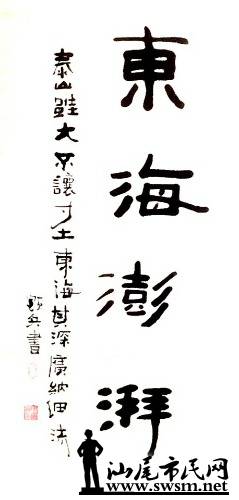 東海澎湃
泰山雖大不讓寸土東海其深廣納細流
兵書
汕尾市民网
www.swsm.net